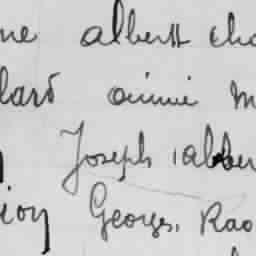 ne albert cha
lard aimée M
Joseph, alber
ion Georges, Rao